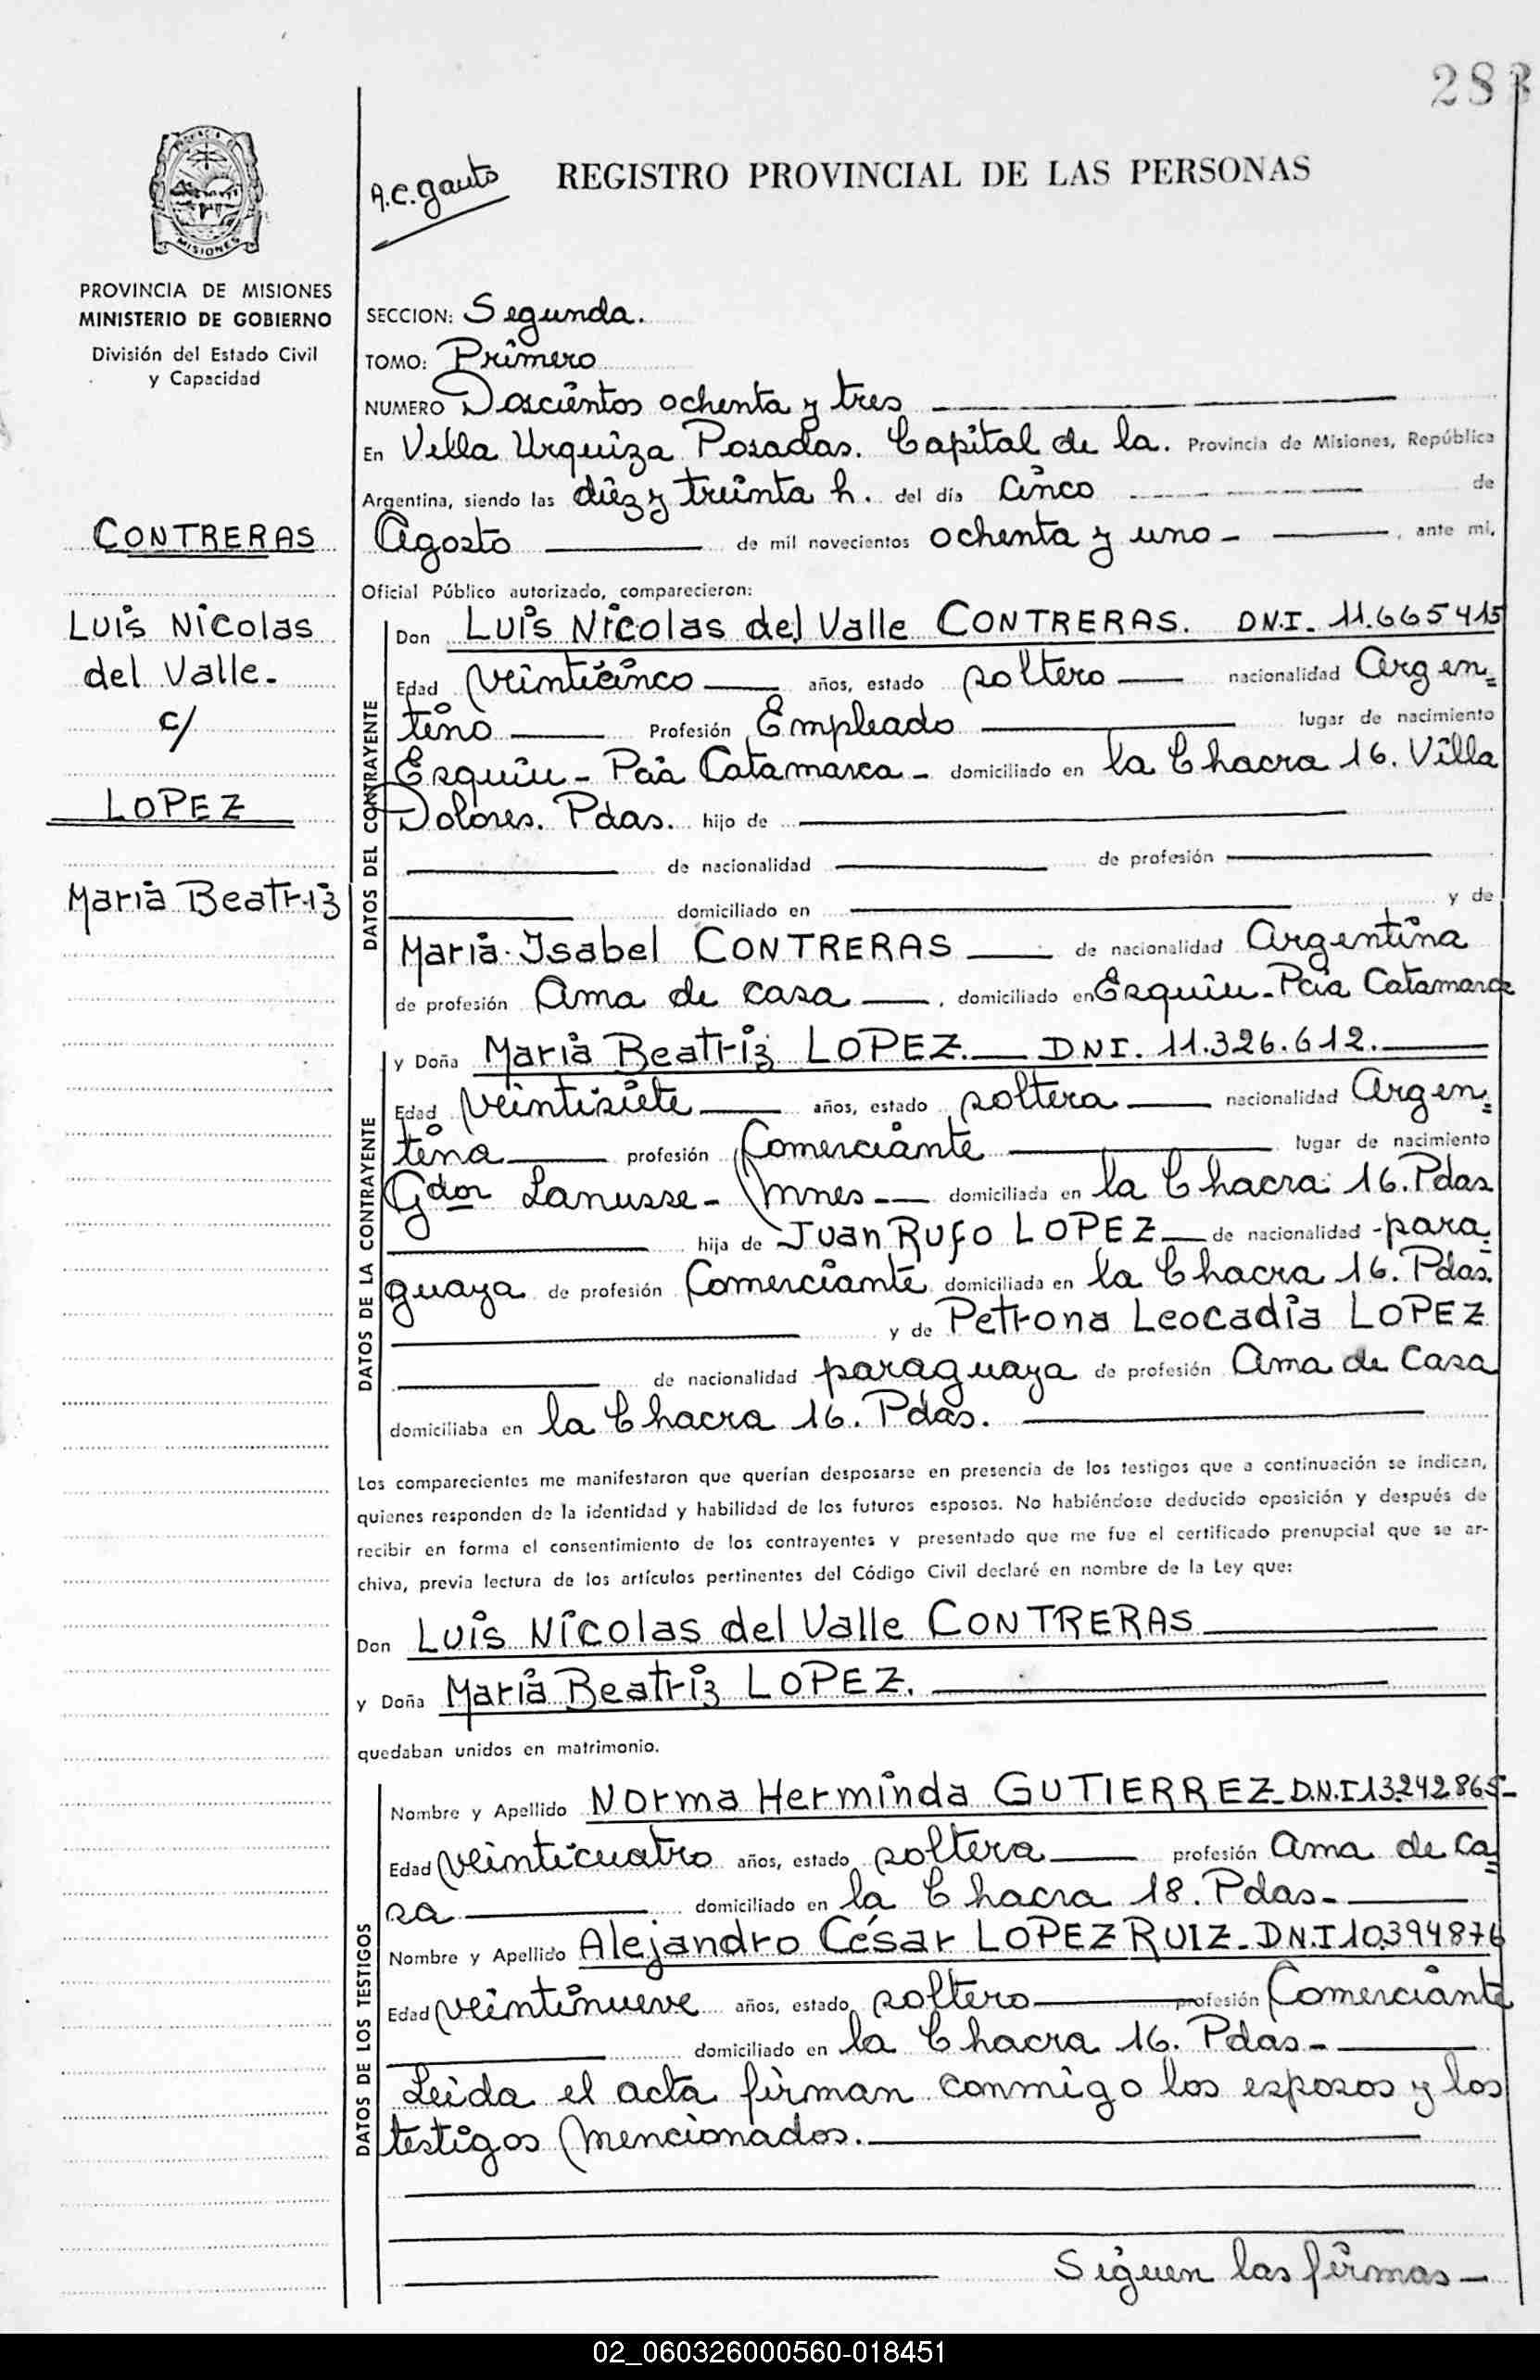 283
A.C. Gauto
REGISTRO PROVINCIAL DE LAS PERSONAS
PROVINCIA DE MISIONES
MINISTERIO DE GOBIERNO
División del Estado Civil
y Capacidad
CONTRERAS
Luis Nicolas
del Valle.
c/
LOPEZ
Maria Beatriz
SECCION: Segunda.
TOMO: Primero
NUMERO Doscientos ochenta y tres
En Villa Urquiza Posadas. Capital de la. Provincia de Misiones, República
Argentina, siendo las diez y treinta h. del día Cinco de
Agosto de mil novecientos ochenta y uno - , ante mi,
Oficial Público autorizado, comparecieron:
DATOS DEL CONTRAYENTE
Don Luis Nicolas del Valle CONTRERAS. DN.I. 11.665415
Edad Veinticinco años, estado soltero nacionalidad Argen=
tino Profesión Empleado lugar de nacimiento
Esquiu - Pcia Catamarca - domiciliado en la Chacra 16. Villa
Dolores. Pdas. hijo de
de nacionalidad de profesión
domiciliado en y de
Maria Isabel CONTRERAS de nacionalidad Argentina
de profesión Ama de casa , domiciliado en Esquiu - Pcia Catamarca
DATOS DE LA CONTRAYENTE
y Doña Maria Beatriz LOPEZ. DNI. 11.326.612.
Edad Veintisiete años, estado soltera nacionalidad Argen=
tina profesión Comerciante lugar de nacimiento
Gdor Lanusse - Mnes - domiciliada en la Chacra 16. Pdas
hija de Juan Rufo LOPEZ de nacionalidad para=
guaya de profesión Comerciante domiciliada en la Chacra 16. Pdas.
y de Petrona Leocadia LOPEZ
de nacionalidad paraguaya de profesión Ama de Casa
domiciliaba en la Chacra 16. Pdas.
Los comparecientes me manifestaron que querían desposarse en presencia de los testigos que a continuación se indican,
quienes responden de la identidad y habilidad de los futuros esposos. No habiéndose deducido oposición y después de
recibir en forma el consentimiento de los contrayentes y presentado que me fue el certificado prenupcial que se ar-
chiva, previa lectura de los artículos pertinentes del Código Civil declaré en nombre de la Ley que:
Don Luis Nicolas del Valle CONTRERAS
y Doña Maria Beatriz LOPEZ.
quedaban unidos en matrimonio.
DATOS DE LOS TESTIGOS
Nombre y Apellido Norma Herminda GUTIERREZ - D.N.I 13242865-
Edad Veinticuatro años, estado soltera profesión Ama de ca=
sa domiciliado en la Chacra 18. Pdas -
Nombre y Apellido Alejandro César LOPEZ RUIZ - DN.I 10394876
Edad Veintinueve años, estado soltero profesión Comerciante
domiciliado en la Chacra 16. Pdas -
Leida el acta firman conmigo los esposos y los
testigos mencionados.
Siguen las firmas -
02_060326000560-018451